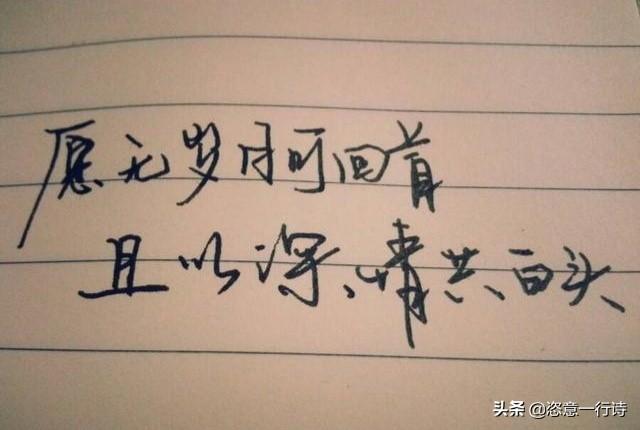 愿无岁月可回首
且以深情共白头
头条 @恣意一行诗